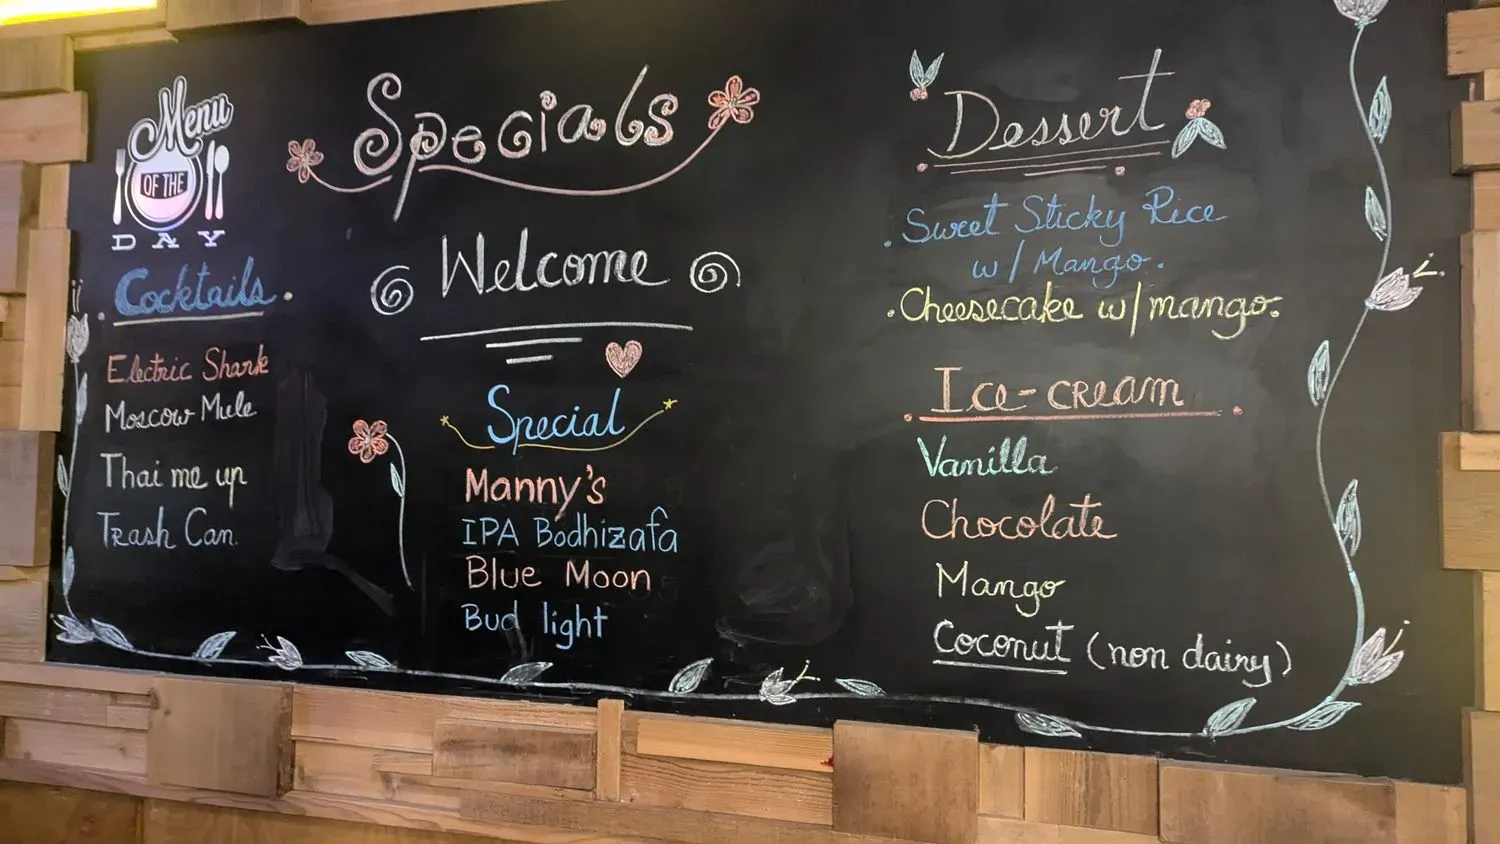 Menu
OF THE
DAY
Cocktails.
Electric Shark
Moscow Mule
Thai me up
Trash Can.
Specials
Welcome
Special
Manny's
IPA Bodhizafa
Blue Moon
Bud light
Dessert
. Sweet Sticky Rice
w/ Mango.
. Cheesecake w/mango.
Ice-cream
Vanilla
Chocolate
Mango
Coconut (non dairy)